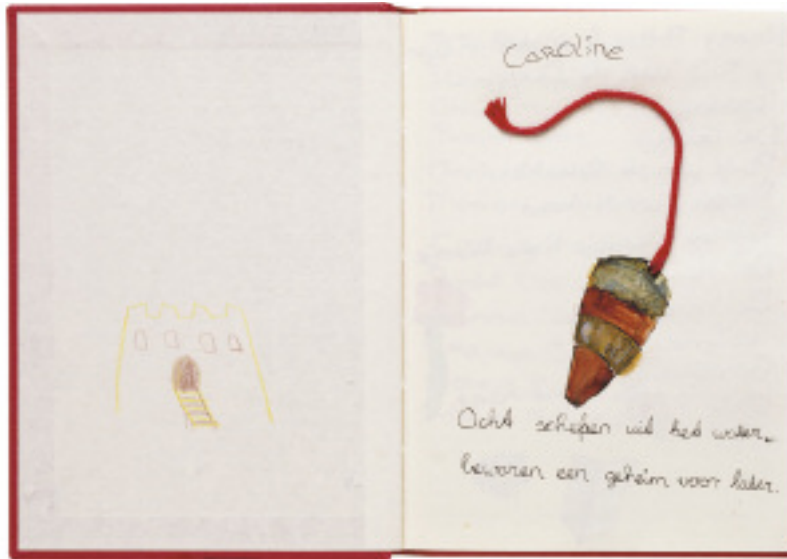 Caroline
Acht schepen uit het water
bewaren een geheim voor later.